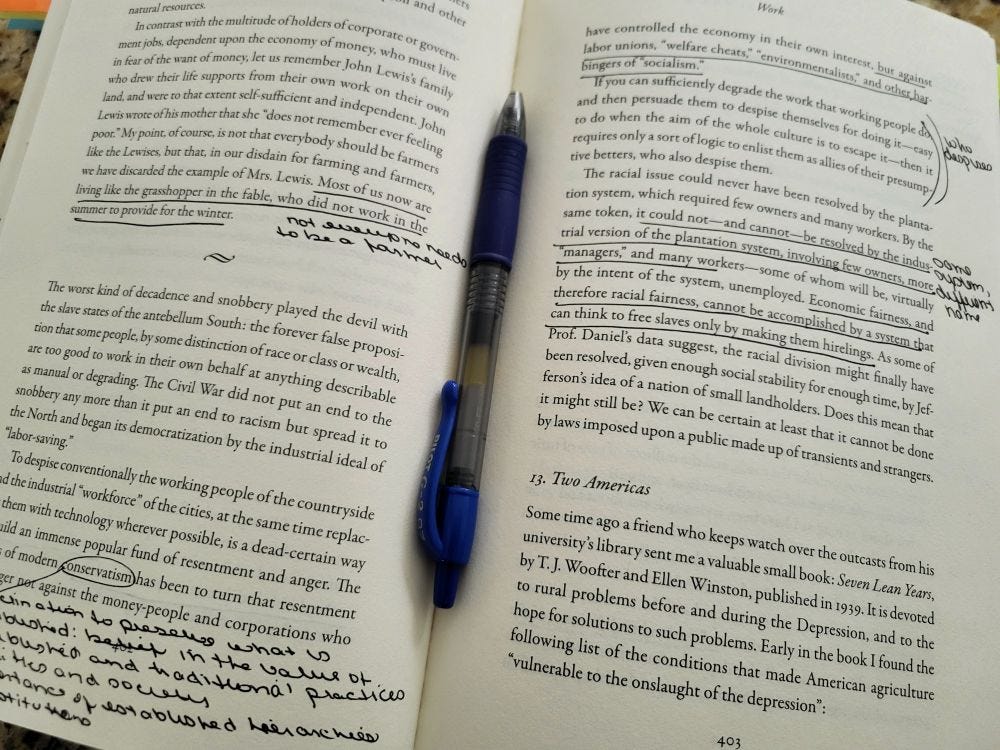 natural resources.
In contrast with the multitude of holders of corporate or govern-
ment jobs, dependent upon the economy of money, who must live
in fear of the want of money, let us remember John Lewis's family
who drew their life supports from their own work on their own
land, and were to that extent self-sufficient and independent. John
Lewis wrote of his mother that she "does not remember ever feeling
poor." My point, of course, is not that everybody should be farmers
like the Lewises, but that, in our disdain for farming and farmers,
we have discarded the example of Mrs. Lewis. Most of us now are
living like the grasshopper in the fable, who did not work in the
summer to provide for the winter.
not everyone needs
to be a farmer
The worst kind of decadence and snobbery played the devil with
the slave states of the antebellum South: the forever false proposi-
tion that some people, by some distinction of race or class or wealth,
are too good to work in their own behalf at anything describable
as manual or degrading. The Civil War did not put an end to the
snobbery any more than it put an end to racism but spread it to
the North and began its democratization by the industrial ideal of
"labor-saving."
To despise conventionally the working people of the countryside
nd the industrial "workforce" of the cities, at the same time replac-
them with technology wherever possible, is a dead-certain way
uild an immense popular fund of resentment and anger. The
s of modern conservatism has been to turn that resentment
ger not against the money-people and corporations who
to preserve what is
in the value of
and traditional practices
and society
of established hierarchies
Work
have controlled the economy in their own interest, but against
labor unions, "welfare cheats," "environmentalists," and other har-
bingers of "socialism."
If you can sufficiently degrade the work that working people do
and then persuade them to despise themselves for doing it—easy
to do when the aim of the whole culture is to escape it—then it
requires only a sort of logic to enlist them as allies of their presump-
tive betters, who also despise them.
who
despises
The racial issue could never have been resolved by the planta-
tion system, which required few owners and many workers. By the
same token, it could not—and cannot—be resolved by the indus-
trial version of the plantation system, involving few owners, more
"managers," and many workers—some of whom will be, virtually
by the intent of the system, unemployed. Economic fairness, and
therefore racial fairness, cannot be accomplished by a system that
can think to free slaves only by making them hirelings. As some of
Prof. Daniel's data suggest, the racial division might finally have
been resolved, given enough social stability for enough time, by Jef-
ferson's idea of a nation of small landholders. Does this mean that
it might still be? We can be certain at least that it cannot be done
by laws imposed upon a public made up of transients and strangers.
same
system,
different
name
13. Two Americas
Some time ago a friend who keeps watch over the outcasts from his
university's library sent me a valuable small book: Seven Lean Years,
by T. J. Woofter and Ellen Winston, published in 1939. It is devoted
to rural problems before and during the Depression, and to the
hope for solutions to such problems. Early in the book I found the
following list of the conditions that made American agriculture
"vulnerable to the onslaught of the depression":
403
PILOT